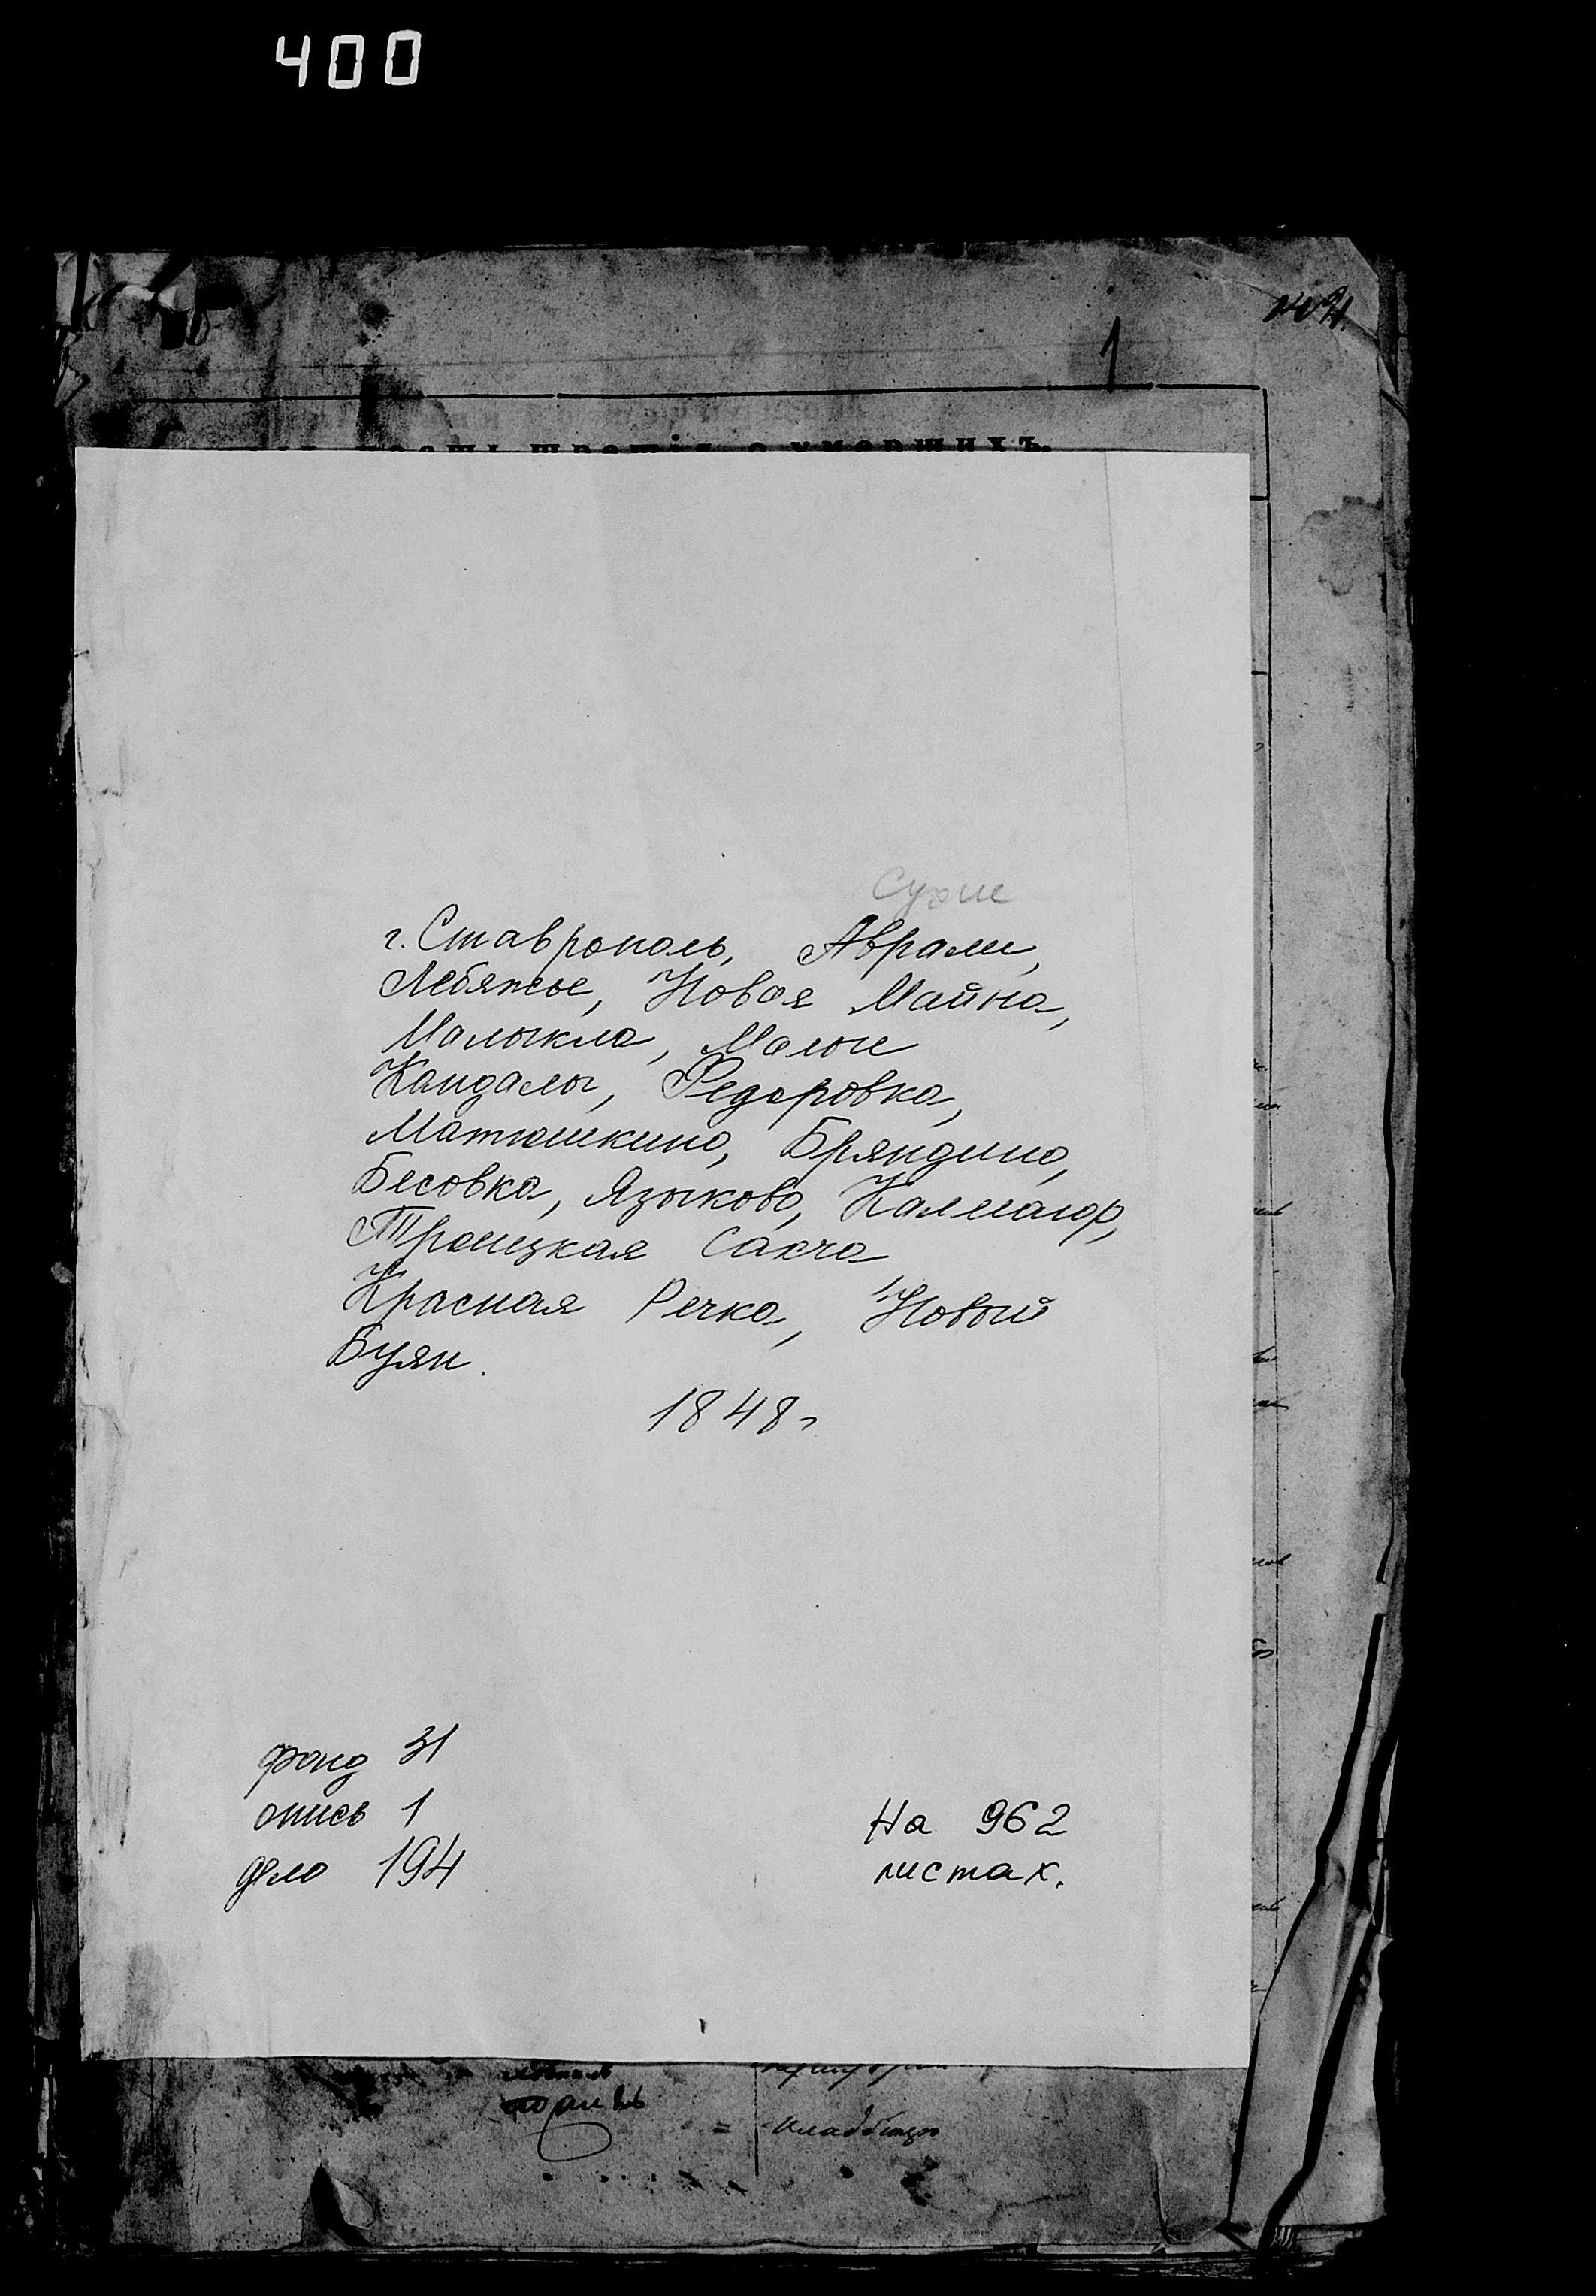 400
1
о умершихъ.
Сухие
г. Ставрополь, Аврали,
Лебяжье, Новая Майна,
Малыкла, Малые
Кандалы, Федоровка,
Матюшкино, Бряндино,
Бесовка, Языково, Калмаюр,
Троицкая Сахча
Красная Речка, Новый
Буян.
1848 г
фонд 31
опись 1
дело 194
На 962
листах.